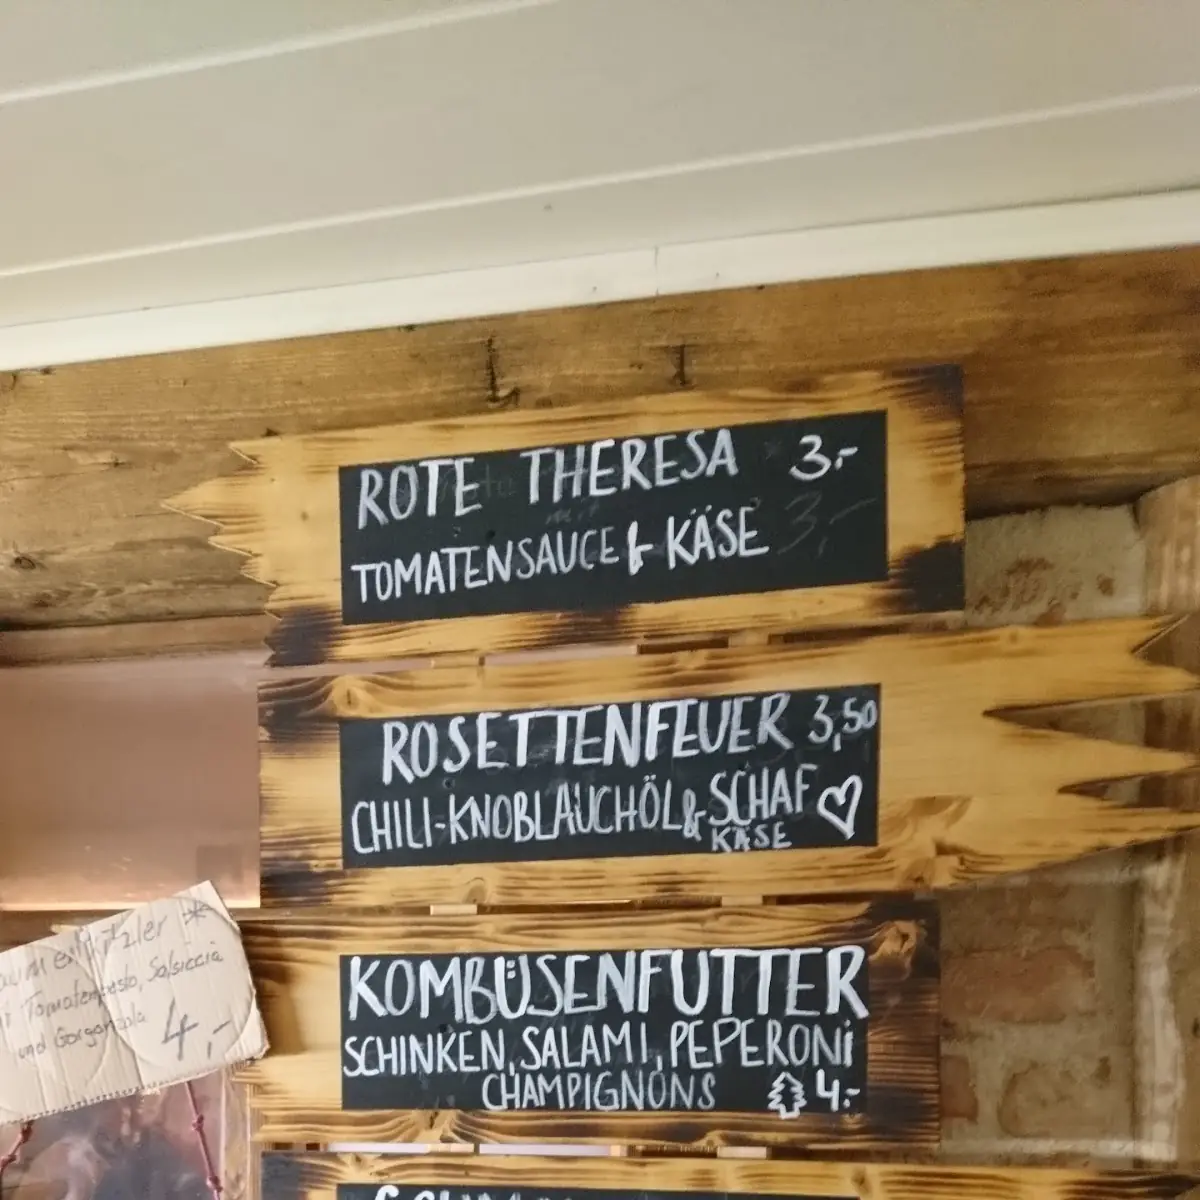 ROTE THERESA 3.-
TOMATENSAUCE & KÄSE 3,-
ROSETTENFEUER 3,50
CHILI-KNOBLAUCHÖL & SCHAF
KÄSE
KOMBÜSENFUTTER
SCHINKEN, SALAMI, PEPERONI
CHAMPIGNONS 4.-
Tomatenpesto, Salsiccia
und Gorgonzola 4,-